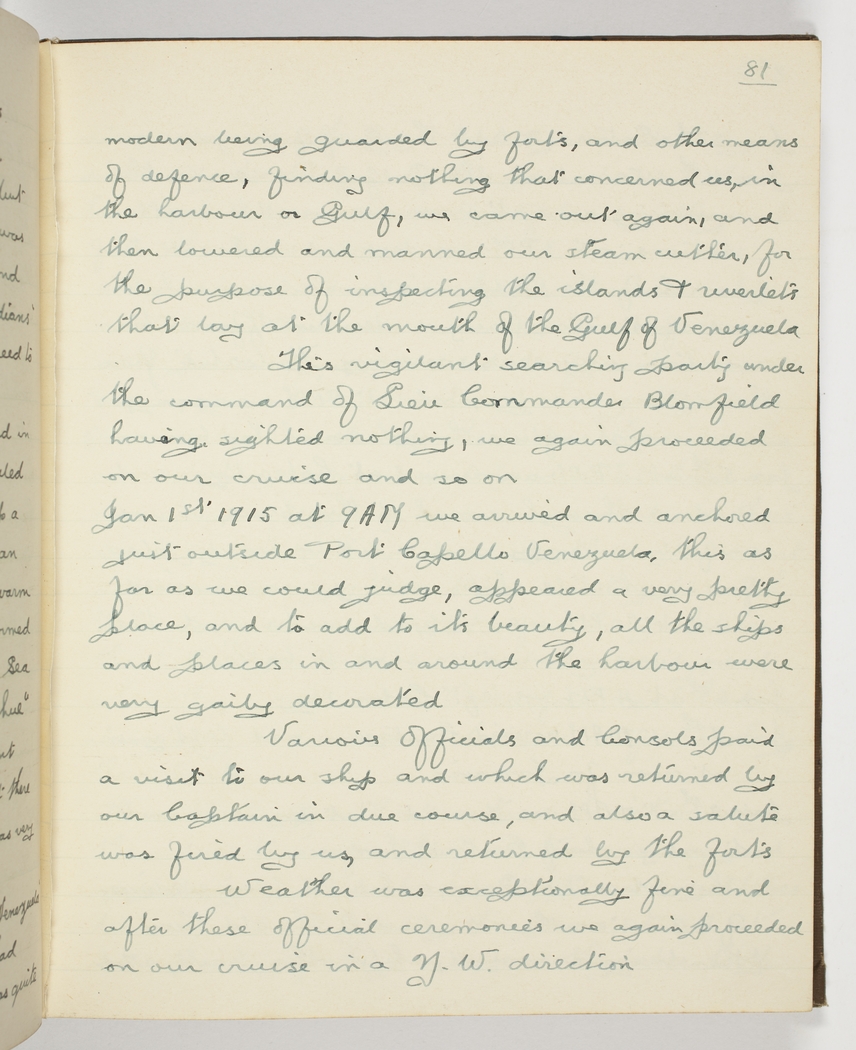 81
modern being guarded by forts, and other means
of defence, finding nothing that concerned us, in
the harbour or Gulf, we came out again, and
then lowered and manned our steam cutter, for
the purpose of inspecting the islands & riverlets
that lay at the mouth of the Gulf of Venezuela
This vigilant searching party under
the command of Lieu Commander Blomfield
having sighted nothing, we again proceeded
on our cruise and so on
Jan 1st 1915 at 9AM we arrived and anchored
just outside Port Capello Venezuela, this as
far as we could judge, appeared a very pretty
place, and to add to it's beauty, all the ships
and places in and around the harbour were
very gaiby decorated
Various Officials and Consols paid
a visit to our ship and which was returned by
our Captain in due course, and also a salute
was fired by us, and returned by the forts
Weather was exceptionally fine and
after these official ceremonies we again proceeded
on our cruise in a N. W. direction